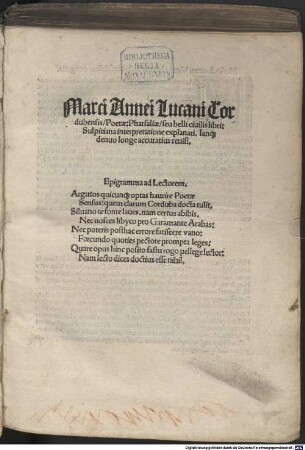 BIBLIOTHECA
REGIA
MONACENSIS
Marci Annei Lucani Cor
dubensis/Poetæ; Pharsaliæ/seu belli ciuilis libri:
Sulpitiana interpretatione explanati, Ianq;
denuo longe accuratius reuisi.
Epigramma ad Lectorem.
Argutos quicunq; optas haurire Poetæ
Sensus: quem claram Corduba docta tulit,
te fonte laues. nam certus abibis.
Nec nosces libyco pro Garamante Arabas;
Nec poteris posthac errore fatiscere vano;
Fœcundo quoties pectore prompta leges;
Quare opus hinc posito fastu rogo pellege lector:
Nam lecto dices doctius esse nihil.